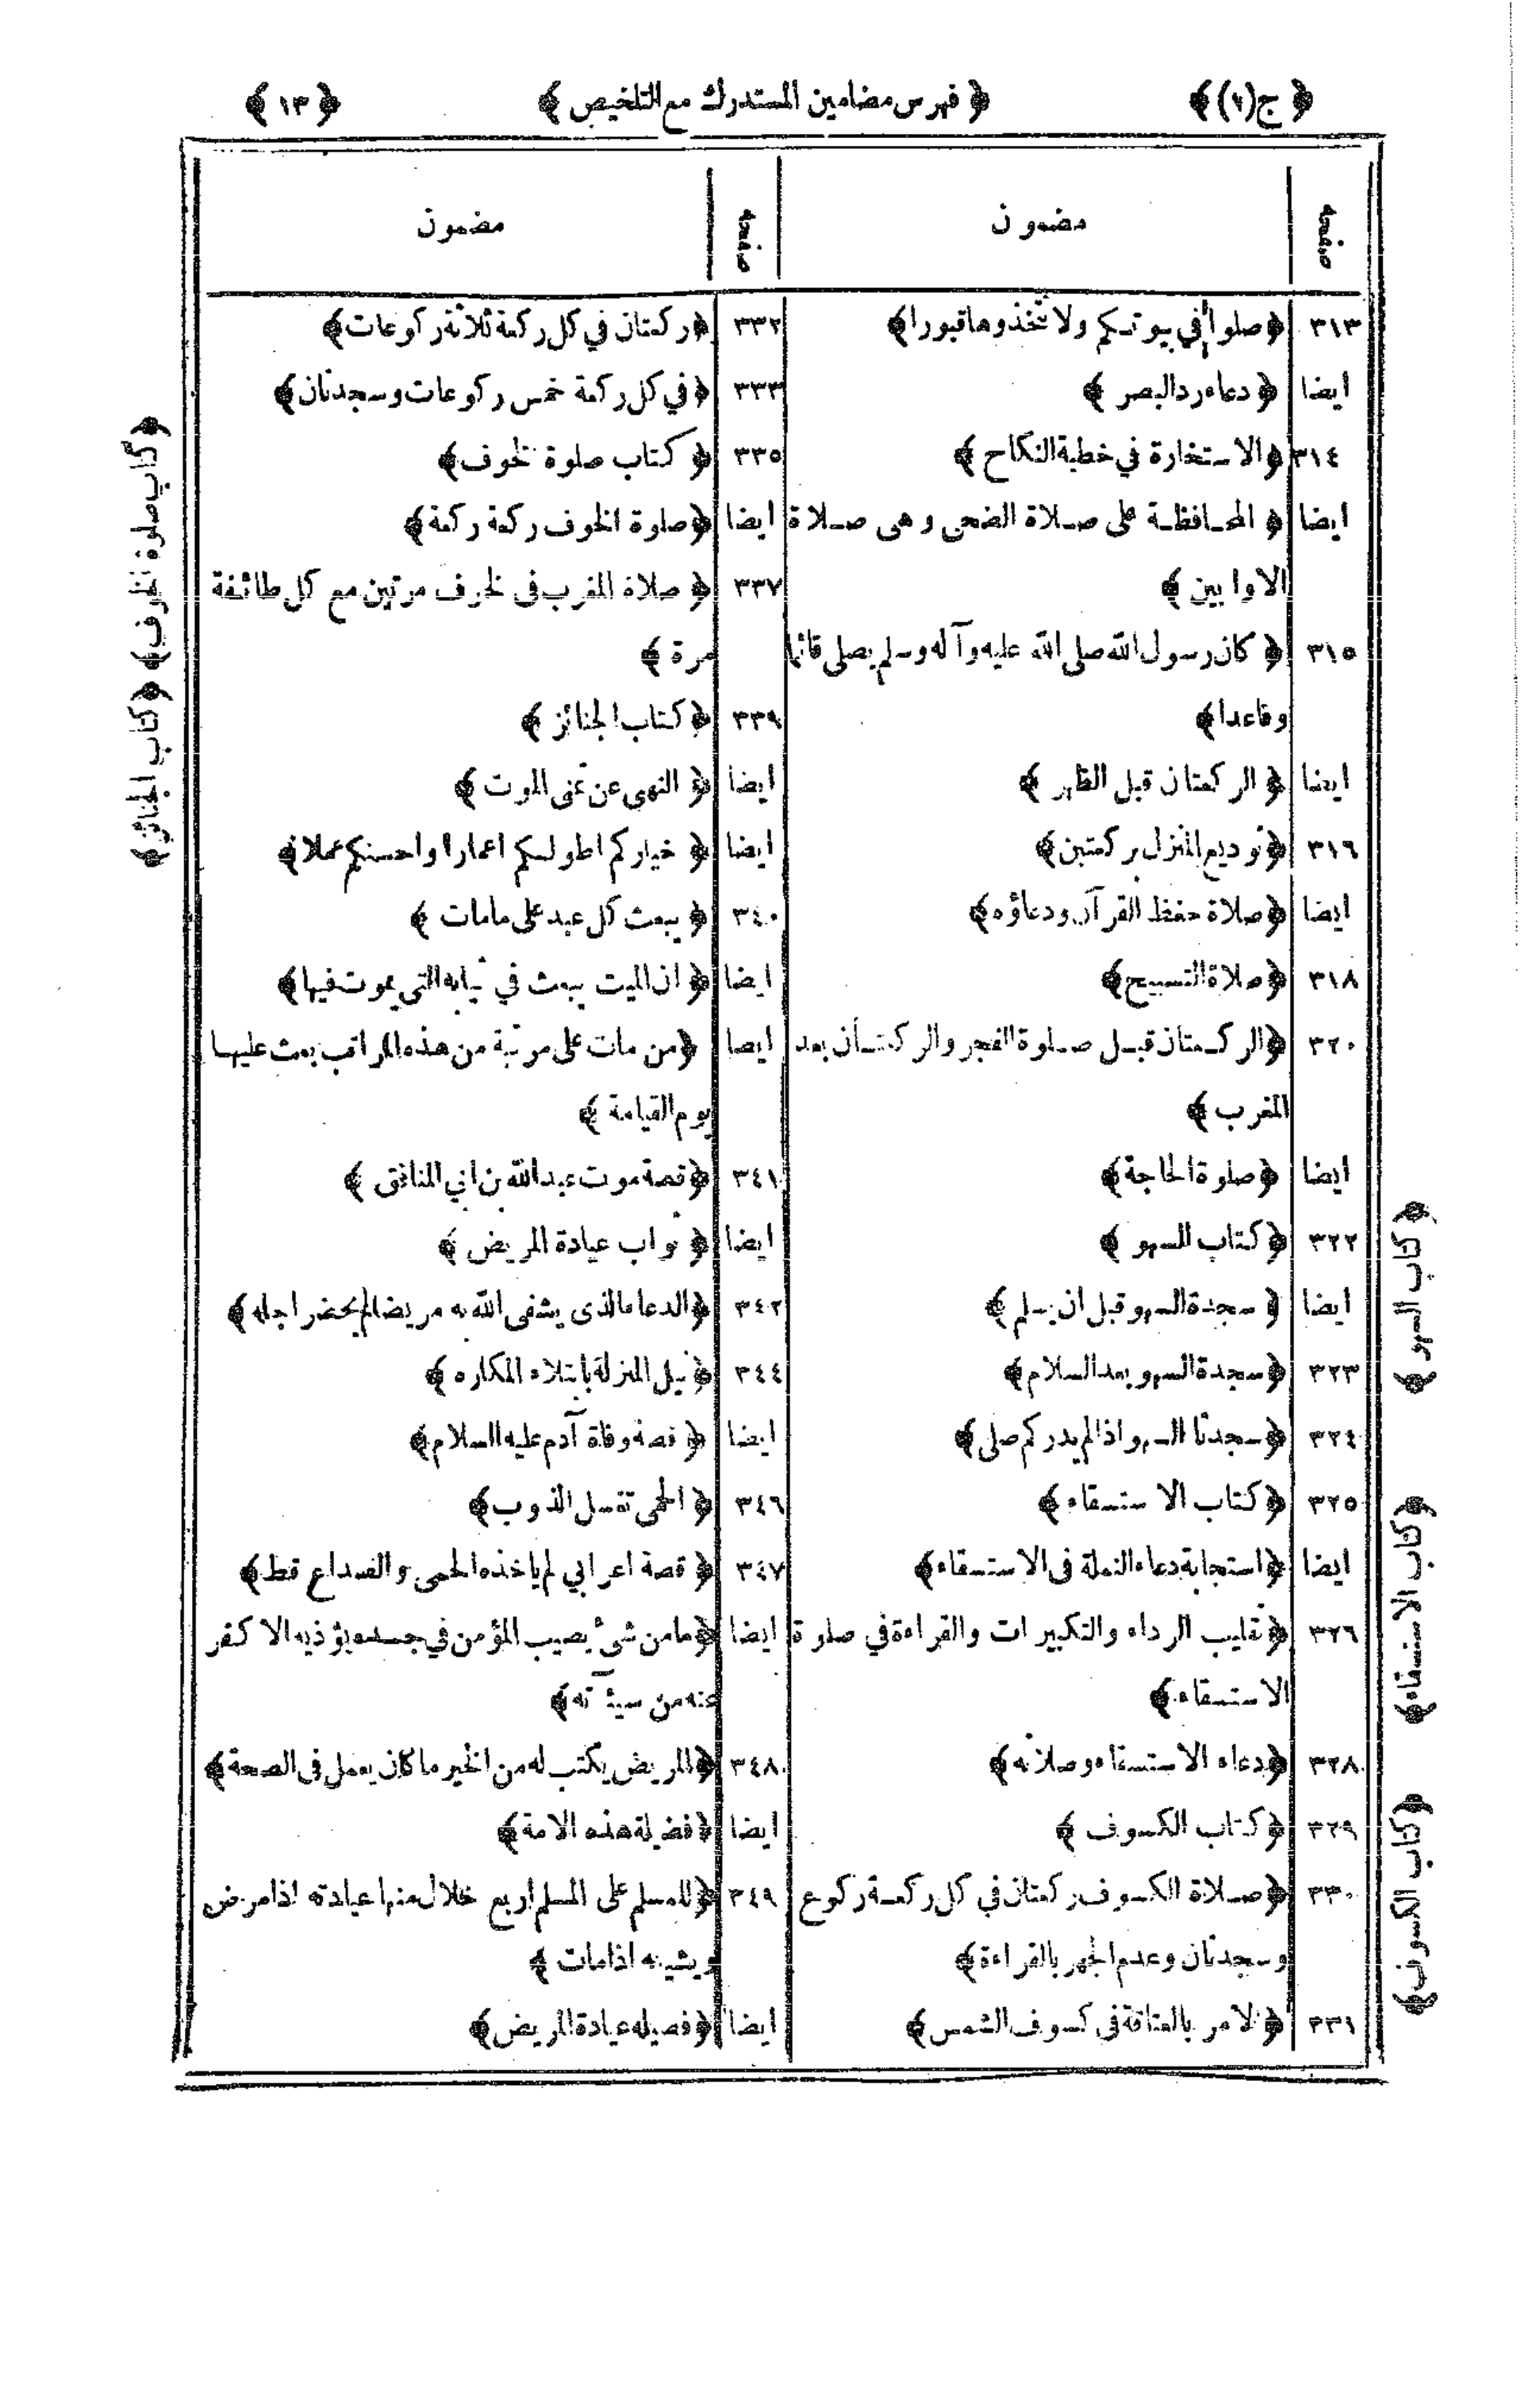 ﴿ ج(١) ﴾ ﴿ فهرس مضامين المستدرك مع التلخيص ﴾ ﴿ ١٣ ﴾
صفحه مضمون
٣١٣ ﴿صلوا في بيوتكم ولا تتخذوها قبورا﴾
ايضا ﴿ دعاء رد البصر ﴾
٣١٤ ﴿الاستخارة في خطبة النكاح ﴾
ايضا ﴿ المحافظة على صلاة الضحى وهى صلاة
الاوابين ﴾
٣١٥ ﴿ كان رسول الله صلى الله عليه وآله وسلم يصلى قائما
وقاعدا﴾
ايضا ﴿ الركعتان قبل الظهر ﴾
٣١٦ ﴿توديع المنزل بركعتين﴾
ايضا ﴿صلاة حفظ القرآن ودعاؤه﴾
٣١٨ ﴿صلاة التسبيح﴾
٣٢٠ ﴿الركعتان قبل صلوة الفجر والركعتان بعد
المغرب ﴾
ايضا ﴿صلوة الحاجة﴾
٣٢٢ ﴿كتاب السهو ﴾
ايضا ﴿ سجدة السهو قبل ان يسلم ﴾
٣٢٣ ﴿سجدة السهو بعد السلام﴾
٣٢٤ ﴿سجدتا السهو اذا لم يدر كم صلى﴾
٣٢٥ ﴿كتاب الاستسقاء﴾
ايضا ﴿استجابة دعاء النملة فى الاستسقاء﴾
٣٢٦ ﴿تقليب الرداء والتكبيرات والقراءة في صلوة
الاستسقاء﴾
٣٢٨ ﴿دعاء الاستسقاء وصلاته﴾
٣٢٩ ﴿كتاب الكسوف ﴾
٣٣٠ ﴿صلاة الكسوف ركعتان في كل ركعة ركوع
وسجدتان وعدم الجهر بالقراءة﴾
٣٣١ ﴿الامر بالعتاقة فى كسوف الشمس﴾
صفحه مضمون
٣٣٢ ﴿ركعتان في كل ركعة ثلاثة ركوعات﴾
٣٣٣ ﴿في كل ركعة خمس ركوعات وسجدتان﴾
٣٣٥ ﴿كتاب صلوة الخوف﴾
ايضا ﴿صلوة الخوف ركعة ركعة﴾
٣٣٧ ﴿ صلاة المغرب فى الخوف مرتين مع كل طائفة
مرة ﴾
٣٣٩ ﴿كتاب الجنائز ﴾
ايضا ﴿ النهى عن تمنى الموت ﴾
ايضا ﴿ خياركم اطولكم اعمارا واحسنكم عملا﴾
٣٤٠ ﴿ يبعث كل عبد على ما مات ﴾
ايضا ﴿ ان الميت يبعث في ثيابه التى يموت فيها﴾
ايضا ﴿من مات على مرتبة من هذه المراتب بعث عليها
يوم القيامة ﴾
٣٤١ ﴿قصة موت عبد الله بن ابي المنافق ﴾
ايضا ﴿ ثواب عيادة المريض ﴾
٣٤٢ ﴿الدعاء الذى يشفى الله به مريضا لم يحضر اجله﴾
٣٤٤ ﴿نيل المنزلة بابتلاء المكاره ﴾
ايضا ﴿ قصة وفاة آدم عليه السلام﴾
٣٤٦ ﴿ الحمى تغسل الذنوب﴾
٣٤٧ ﴿ قصة اعرابي لم ياخذه الحمى والصداع قط﴾
ايضا ﴿ما من شئ يصيب المؤمن في جسده يؤذيه الا كفر
عنه من سيئآته﴾
٣٤٨ ﴿المريض يكتب له من الخير ما كان يعمل فى الصحة﴾
ايضا ﴿فضيلة هذه الامة﴾
٣٤٩ ﴿للمسلم على المسلم اربع خلال منها عيادته اذا مرض
ويشيعه اذا مات ﴾
ايضا ﴿فضيلة عيادة المريض﴾
﴿ كتاب السهو ﴾
﴿كتاب الاستسقاء﴾
﴿كتاب الكسوف﴾
﴿كتاب صلوة الخوف﴾ ﴿كتاب الجنائز﴾